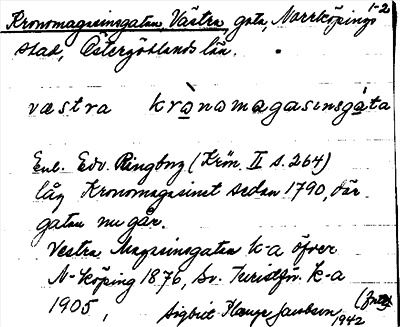 Kronomagasinsgatan, Västra gata, Norrköpings 1-2
stad, Östergötlands län.
væstra krànomagasinsgáta
Enl. Edv. Ringborg (Krön. II s. 264)
låg Kronomagasinet sedan 1790, där
gatan nu går.
Vestra Magasinsgatan k-a öfver
N-köping 1876, Sv. Turistför. k-a
1905,
Sigbrit
1942